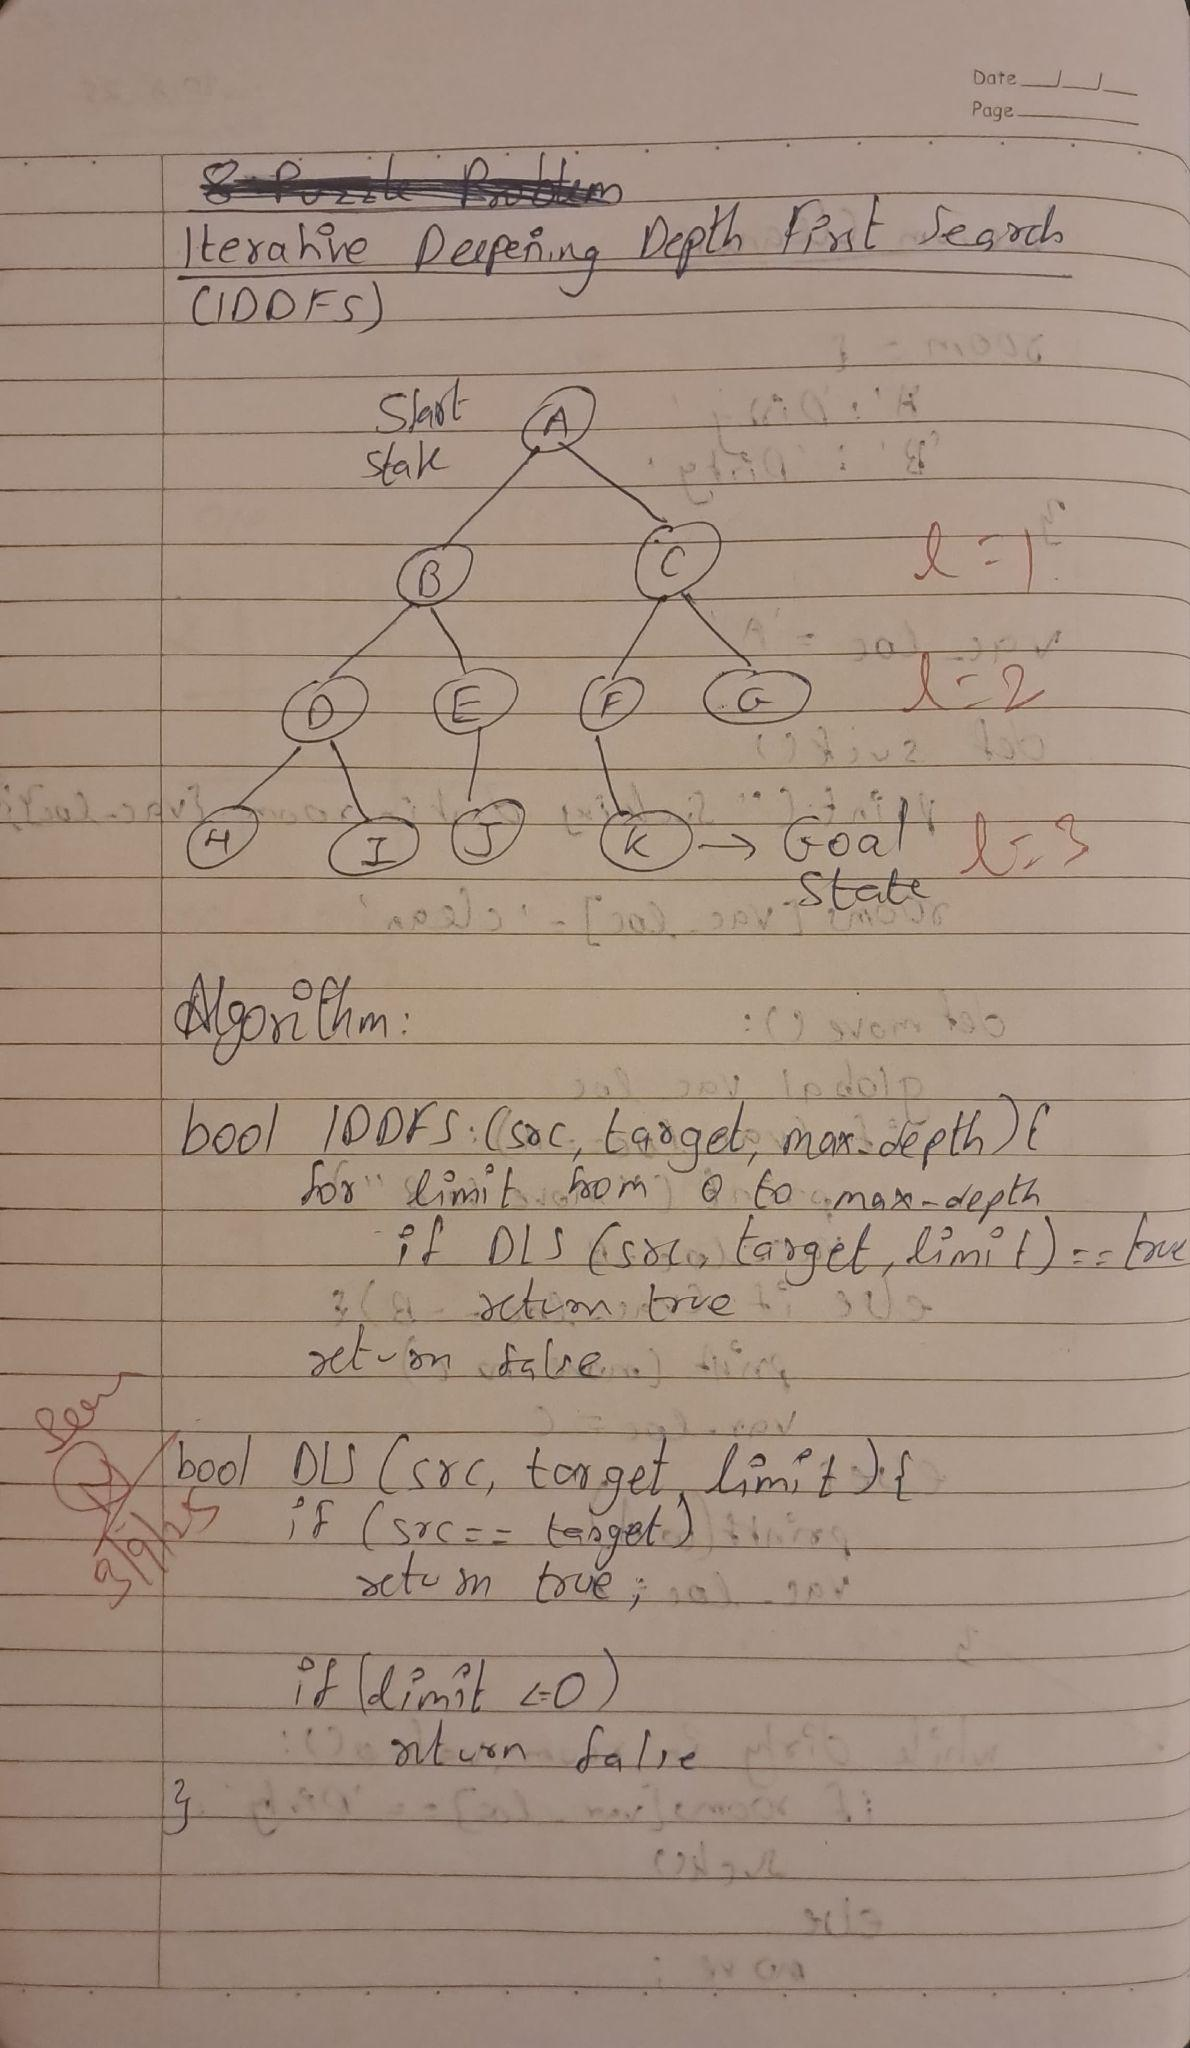 Date
Page
8 Puzzle Problem
Iterative Deepening Depth First Search
(IDDFS)
Start
state
A
B
C
l=1
D
E
F
G
l=2
H
I
J
K → Goal
State
l=3
Algorithm:
bool IDDFS:(src, target, max-depth){
for limit from 0 to max-depth
if DLS (src, target, limit)==true
return true
return false
Seen
3/9/25
bool DLS (src, target, limit){
if (src== target)
return true;
if (limit <=0)
return false
}